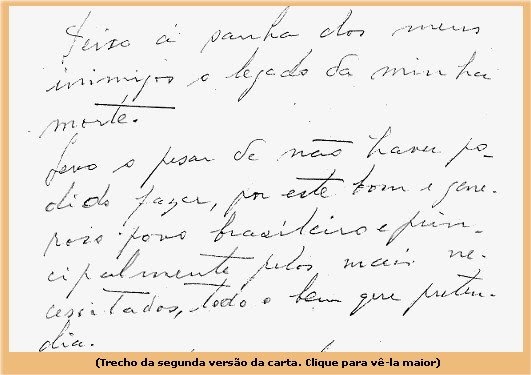 Deixo à sanha dos meus
inimigos o legado da minha
morte.
Levo o pesar de não haver po-
dido fazer, por este bom e gene-
roso povo brasileiro e prin-
cipalmente pelos mais ne-
cessitados, todo o bem que preten-
dia.
(Trecho da segunda versão da carta. Clique para vê-la maior)